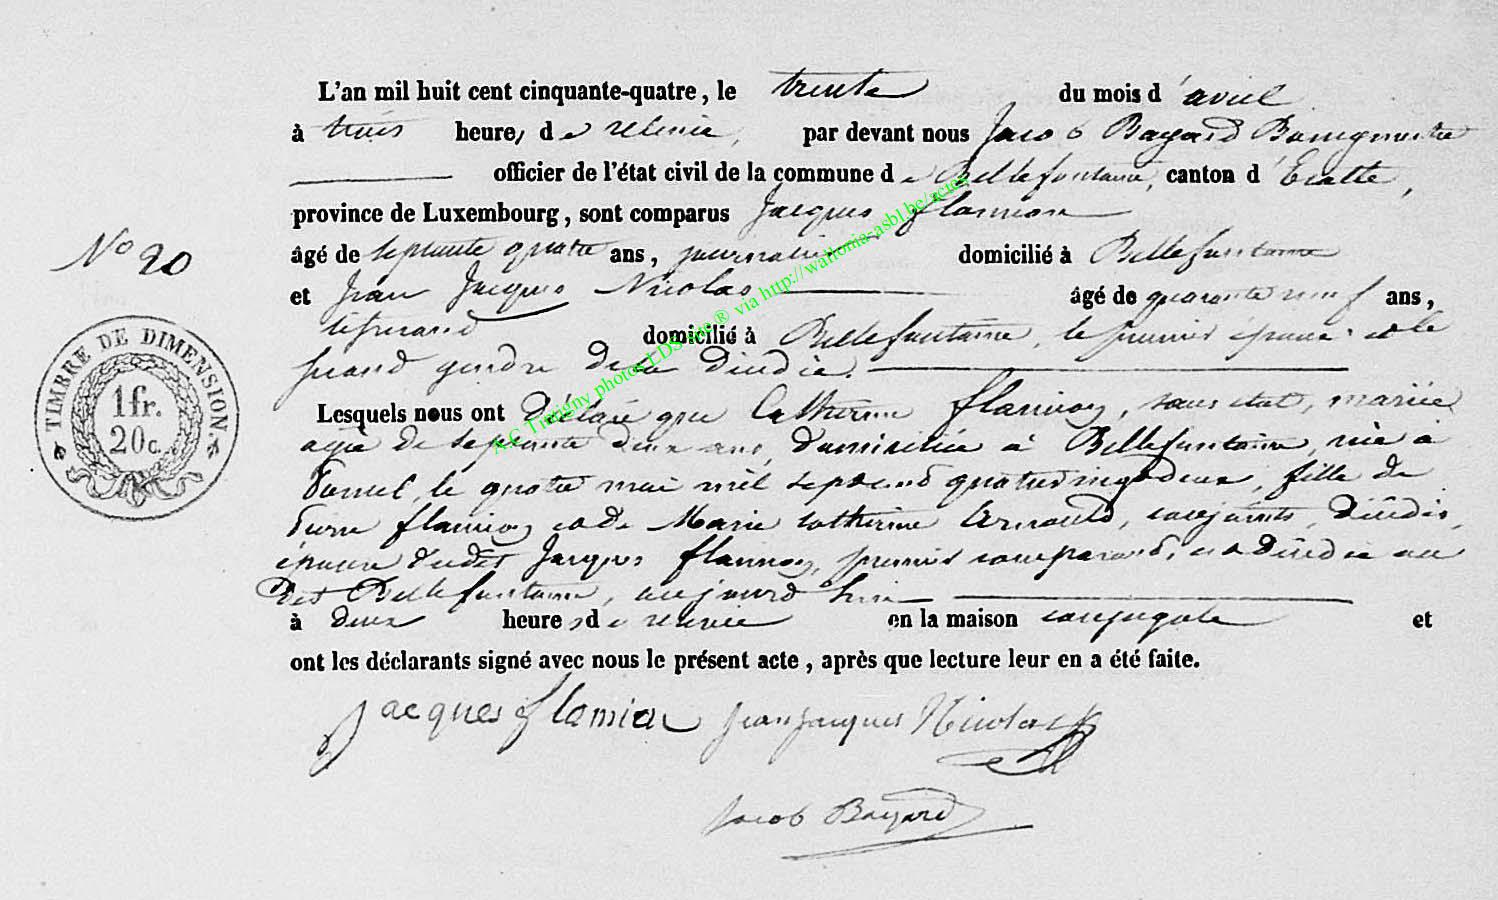 L'an mil huit cent cinquante-quatre, le trente du mois d'avril
à trois heures de relevée, par devant nous Jacob Bayard Bourgmestre
officier de l'état civil de la commune de Bellefontaine, canton d'Etalle,
province de Luxembourg, sont comparus Jacques flamion
N° 20
âgé de septante quatre ans, journalier domicilié à Bellefontaine
et Jean Jacques Nicolas âgé de quarante neuf ans,
tisserand domicilié à Bellefontaine, le premier époux et le
second gendre de la
TIMBRE DE DIMENSION
1 fr.
20 c.
Lesquels nous ont déclaré que Catherine flamion, sans état, mariée
agée de septante deux ans, domiciliée à Bellefontaine, née à
le quatre mai mil sept cent quatrevingt deux, fille de
Pierre flamion et de Marie Catherine Arnould, conjoints,
épouse dudit Jacques flamion, premier comparant, est au
dit Bellefontaine, aujourd'hui
à deux heures de relevée en la maison conjugale et
ont les déclarants signé avec nous le présent acte, après que lecture leur en a été faite.
Jacques flamion Jean Jacques Nicolas
Jacob Bayard
A.C. Tintigny photos LDS site ® via http://wallonia-asbl.be/actes